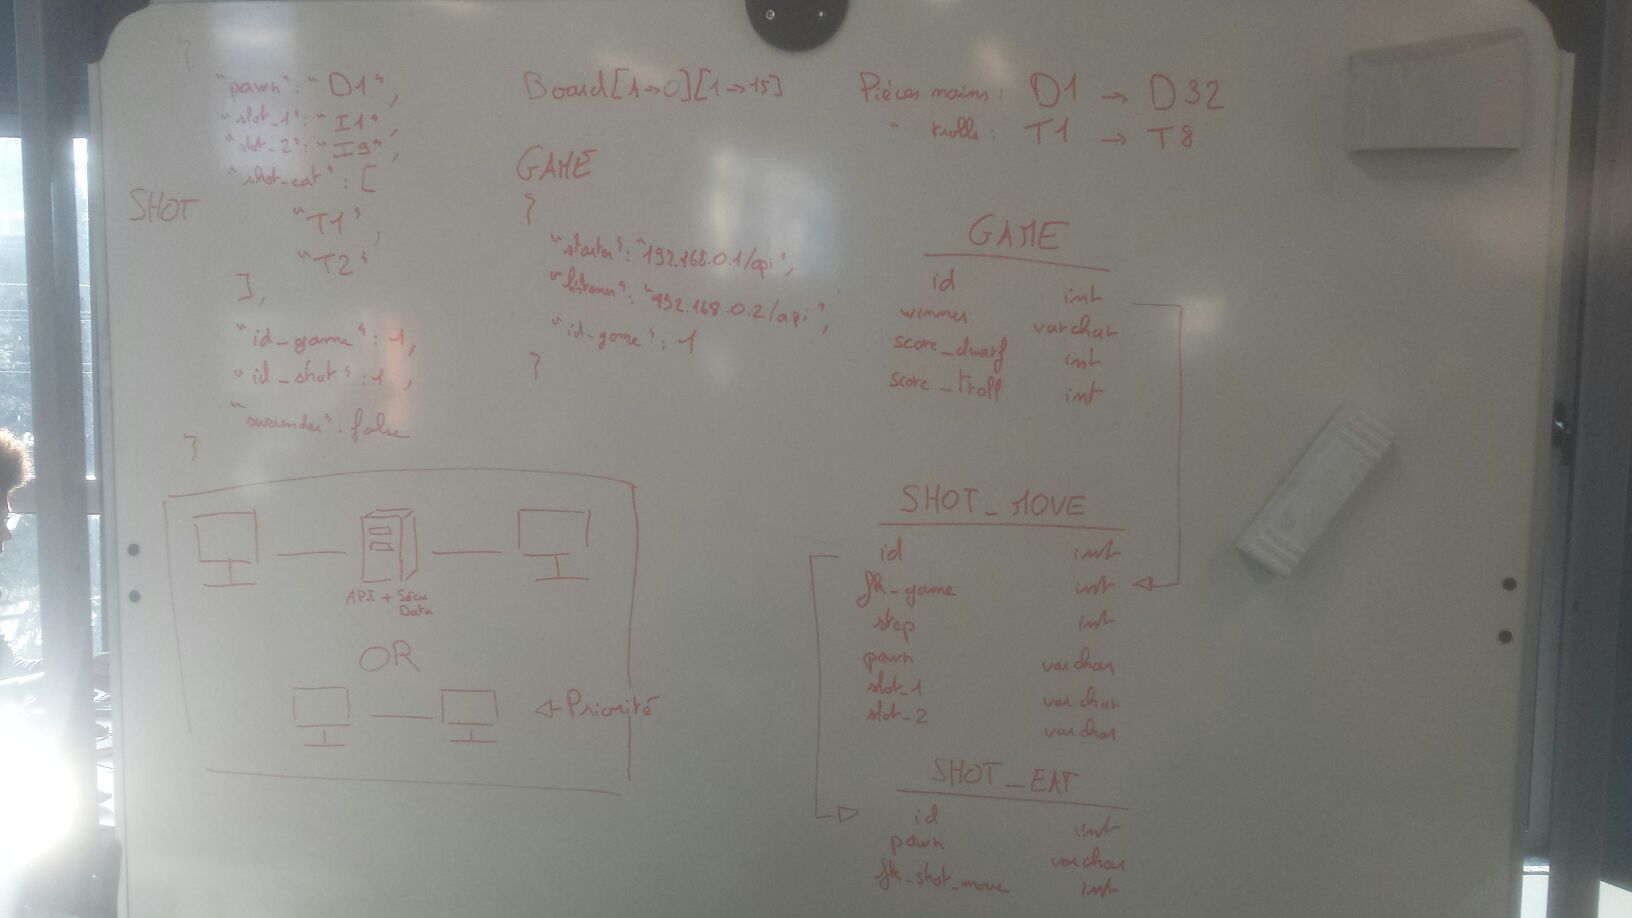 {
"pawn": "D1",
"slot_1": "I1",
"slot_2": "I9",
"shot_eat": [
SHOT
"T1",
"T2"
],
"id_game": 1,
"id_shot": 1,
"surrender": false
}
Board[A→O][1→15]
GAME
{
"starter": "192.168.0.1/api",
"listener": "192.168.0.2/api",
"id_game": 1
}
Pièces nains: D1 → D32
" trolls: T1 → T8
GAME
id int
winner varchar
score_dwarf int
score_troll int
SHOT_MOVE
id int
fk_game int
step int
pawn varchar
slot_1 varchar
slot_2 varchar
SHOT_EAT
id int
pawn varchar
fk_shot_move int
API + Sécu
Data
OR
Priorité